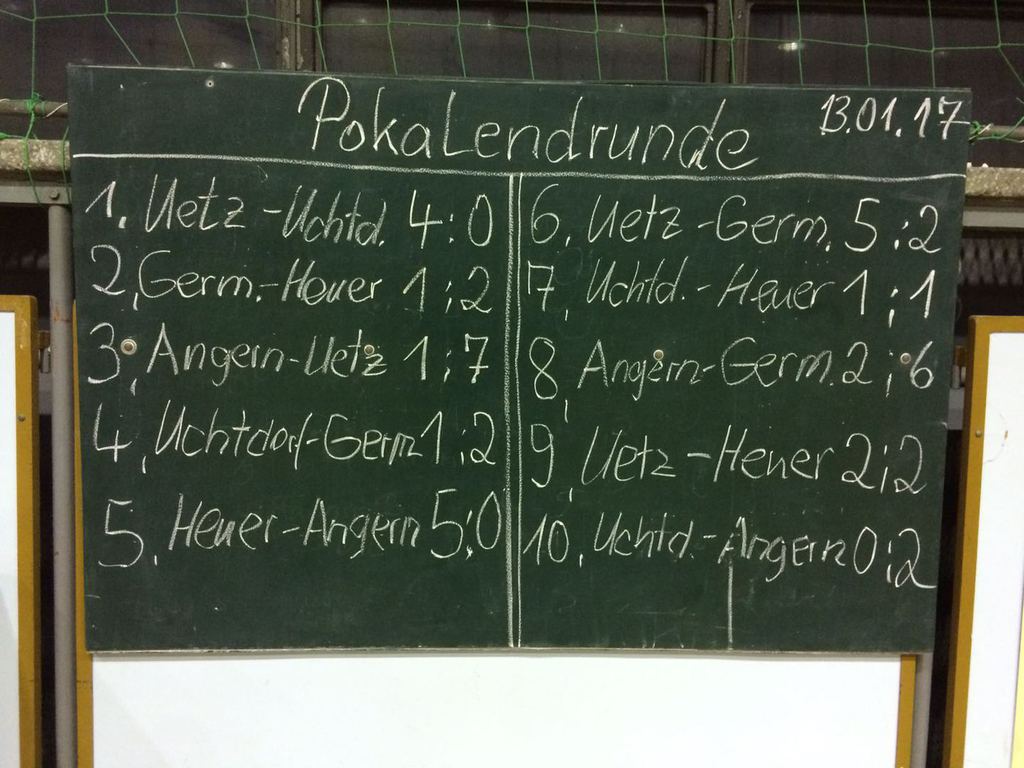 Pokalendrunde 13.01.17
1. Uetz - Uchtd. 4:0
2. Germ. - Heuer 1:2
3. Angern - Uetz 1:7
4. Uchtdorf - Germ 1:2
5. Heuer - Angern 5:0
6. Uetz - Germ. 5:2
7. Uchtd. - Heuer 1:1
8. Angern - Germ. 2:6
9. Uetz - Heuer 2:2
10. Uchtd. - Angern 0:2